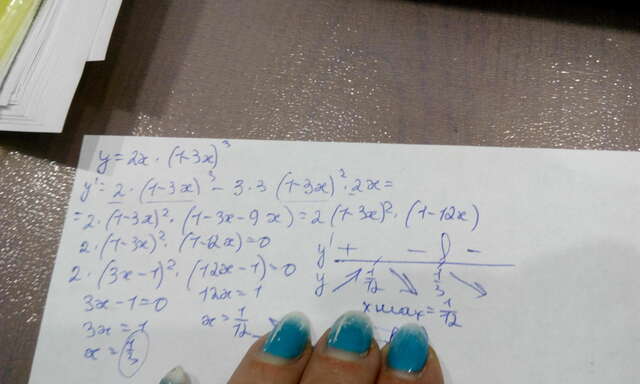 y = 2x · (1-3x)³
y' = 2 · (1-3x)³ - 3·3 (1-3x)² · 2x =
= 2 · (1-3x)² · (1-3x-9x) = 2(1-3x)² · (1-12x)
2 · (1-3x)² · (1-12x) = 0
2 · (3x-1)² · (12x-1) = 0
3x-1=0
3x = 1
x = 1/3
12x = 1
x = 1/12
y' + - -
y 1/12 1/3
xmax = 1/12